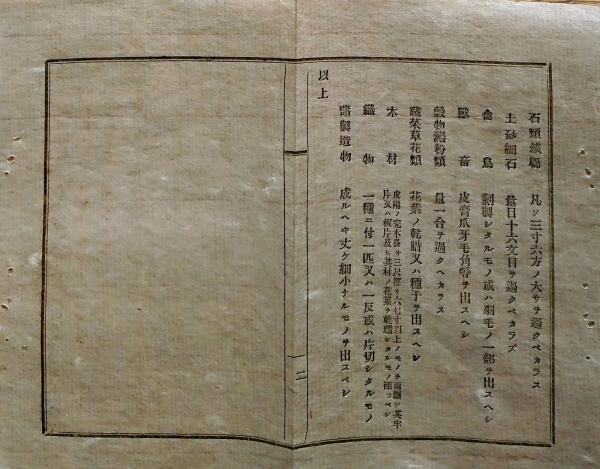 石類鑛屬　凡ソ三寸六方ノ大サヲ過クベカラス
土砂細石　量目十六文目ヲ過クベカラズ
禽鳥　剝製シタルモノ或ハ羽毛ノ一部ヲ出スヘシ
獸畜　皮膏爪牙毛角等ヲ出スヘシ
穀物澱粉類　量一合ヲ過クヘカラス
蔬菜草花類　花葉ノ乾腊又ハ種子ヲ出スヘシ
木材　皮附ノ完木長サ三尺徑リ六七寸以上ノモノヲ兩斷シ其半
片又ハ板片及ヒ其材ノ花葉ヲ乾腊シタルモノ種ヲベシ
織物　一種ニ付一匹又ハ一反或ハ片切シタルモノ
諸製造物　成ルヘキ丈ケ細小ナルモノヲ出スベシ
以上
二